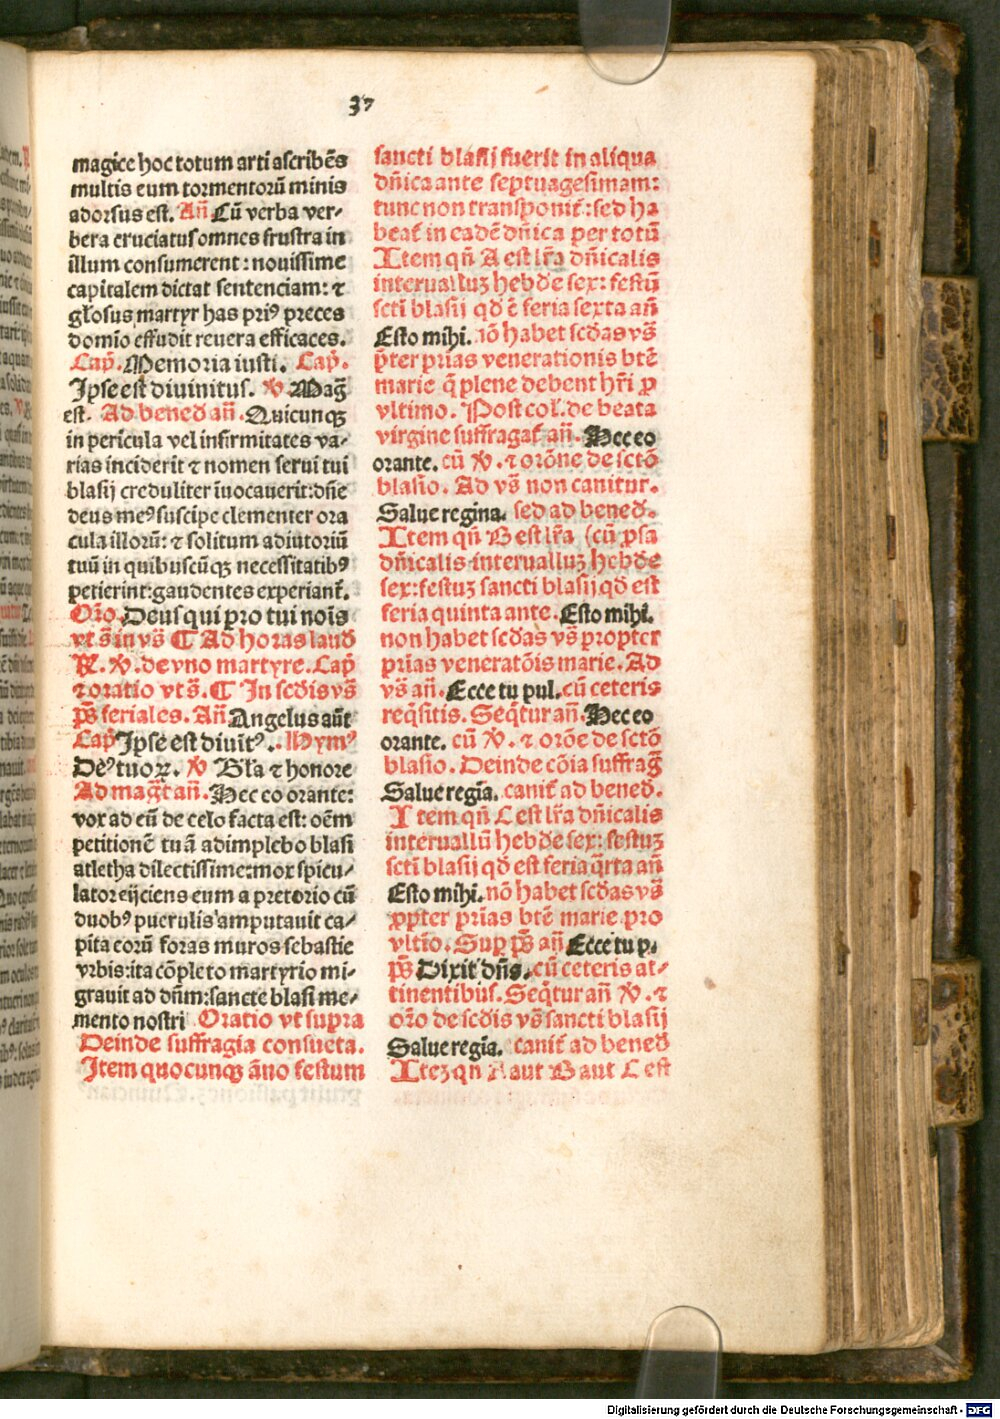 37
magice hoc totum arti ascribēs
multis eum tormentorū minis
adorsus est. Añ Cū verba ver-
bera cruciatus omnes frustra in
illum consumerent: nouissime
capitalem dictat sentenciam: ⁊
gl̄osus martyr has priꝰ preces
domīo effudit reuera efficaces.
Cap̄. Memoria iusti. Cap̄.
Ipse est diuinitus. ꝟ Mag̃
est. Ad bened añ. Quicunqꝫ
in pericula vel infirmitates va-
rias inciderit ⁊ nomen serui tui
blasij creduliter īuocauerit: dñe
deus meꝰ suscipe clementer ora
cula illorū: ⁊ solitum adiutoriū
tuū in quibuscūqꝫ necessitatibꝰ
petierint: gaudentes experiant̄.
Oro. Deus qui pro tui nois
vt s̄ in vs̄ ¶ Ad horas laud
℞. ꝟ. de vno martyre. Cap̄
⁊ oratio vt s̄. ¶ In scdis vs̄
ps̄ feriales. Añ Angelus aūt
Cap̄ Ipse est diuitꝰ. Hymꝰ
Deꝰ tuoꝝ. ꝟ Gl̄a ⁊ honore
Ad mag̃t añ. Hec eo orante:
vox ad eū de celo facta est: oēm
petitionē tuā adimplebo blasi
atletha dilectissime: mox spicu-
lator eijciens eum a pretorio cū
duobꝰ puerulis amputauit ca-
pita eorū foras muros sebastie
vrbis: ita cōpleto martyrio mi-
grauit ad dñm: sancte blasi me-
mento nostri Oratio vt supra
Deinde suffragia consueta.
Item quocunqꝫ āno festum
sancti blasij fuerit in aliqua
dñica ante septuagesimam:
tunc non transponit̄: sed ha
beat̄ in eadē dñica per totū
Item qñ A est lr̄a dñicalis
interualluꝫ hebde sex: festū
scti blasij qd ē feria sexta añ
Esto mihi. nō habet scdas vs̄
ꝓter prias venerationis btē
marie q̄ plene debent hr̄i ꝓ
vltimo. Post col. de beata
virgine suffragat̄ añ. Hec eo
orante. cū ꝟ. ⁊ orōne de sctō
blasio. Ad vs̄ non canitur.
Salue regina. sed ad bened.
Item qñ B est lr̄a (cū ꝓsa
dñicalis interualluꝫ hebde
sex: festuꝫ sancti blasij qd est
feria quinta ante. Esto mihi.
non habet scdas vs̄ propter
prias veneratōis marie. Ad
vs̄ añ. Ecce tu pul. cū ceteris
req̄sitis. Seq̄tur añ. Hec eo
orante. cū ꝟ. ⁊ orōe de sctō
blasio. Deinde cōia suffrag̃
Salue regia. canit̄ ad bened.
Item qñ C est lr̄a dñicalis
interuallū hebde sex: festuꝫ
scti blasij qd est feria q̄rta añ
Esto mihi. nō habet scdas vs̄
ꝓpter prias btē marie. pro
vltīo. Suꝑ ps̄ añ Ecce tu p.
ps̄ Dixit dñs. cū ceteris at-
tinentibus. Seq̄tur añ ꝟ. ⁊
oro de scdis vs̄ sancti blasij
Salue regia. canit̄ ad bened
Iteꝫ qñ A aut B aut C est
Digitalisierung gefördert durch die Deutsche Forschungsgemeinschaft - DFG